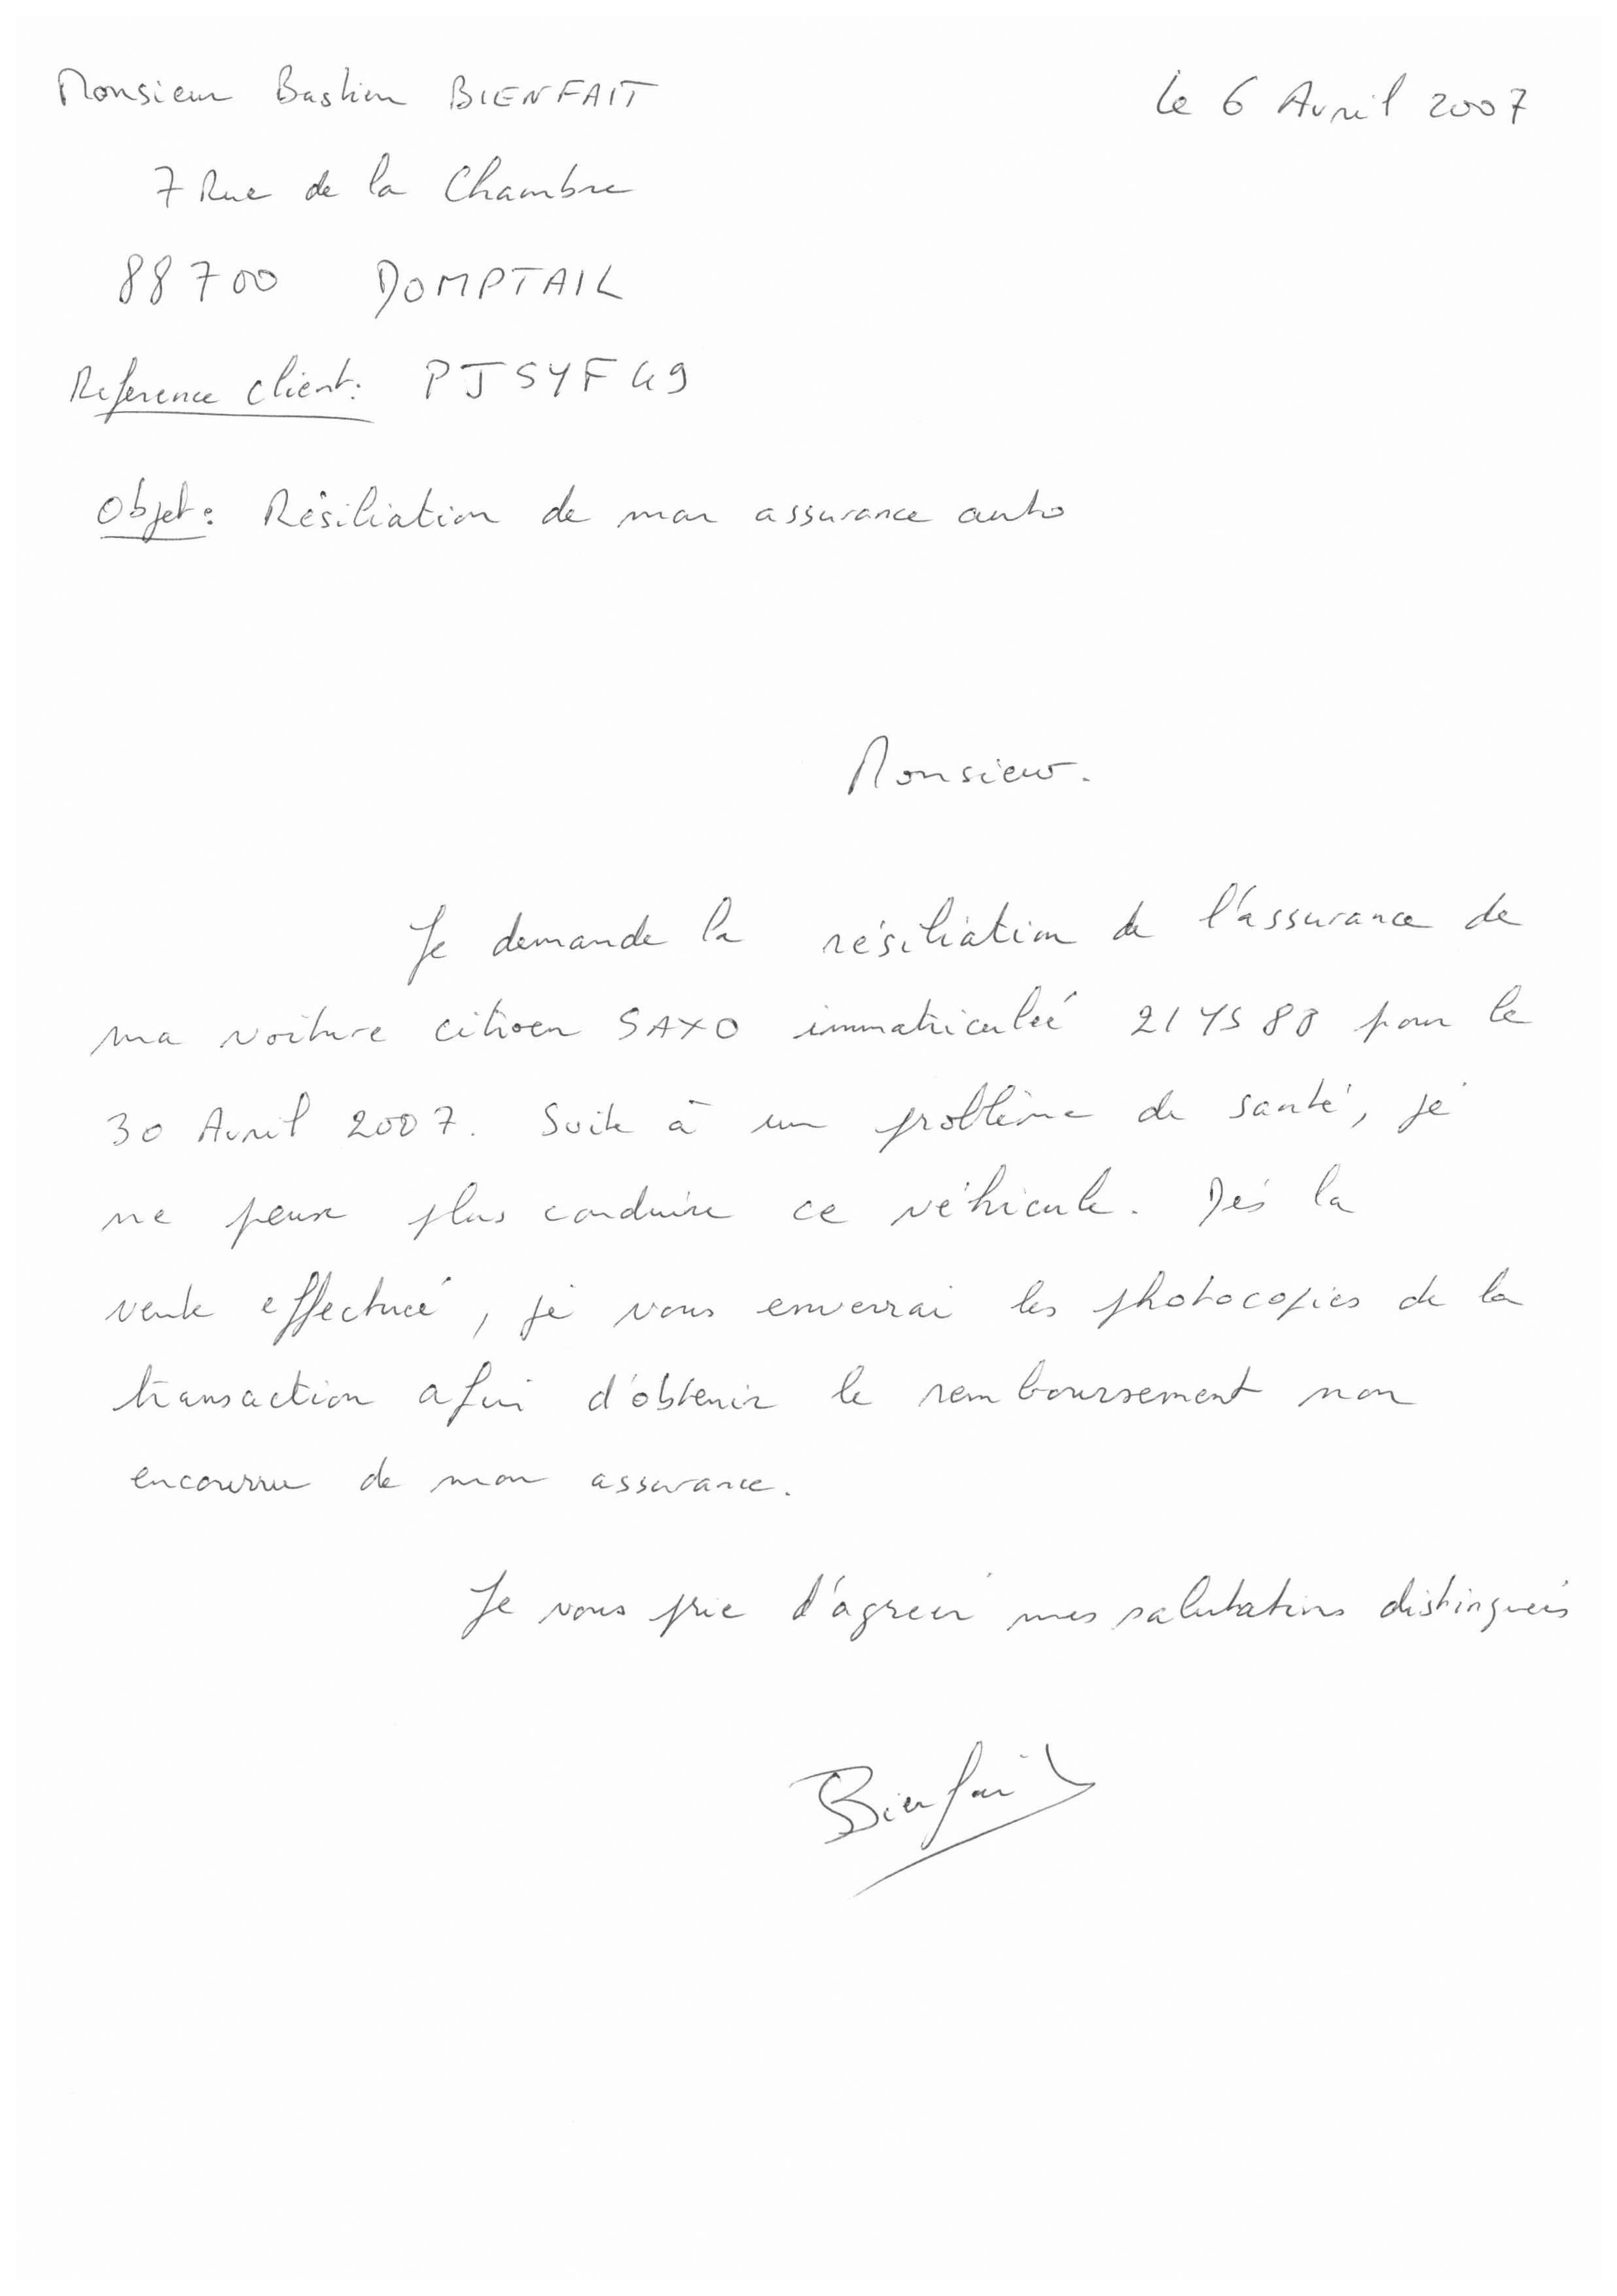 Monsieur Bastien BIENFAIT
le 6 Avril 2007
7 Rue de la Chambre
88700 DOMPTAIL
Reference client: PJSYF49
Objet: Résiliation de mon assurance auto
Monsieur.
Je demande la résiliation de l'assurance de
ma voiture citroen SAXO immatriculée 21 YS 88 pour le
30 Avril 2007. Suite à un problème de santé, je
ne peux plus conduire ce véhicule. Dés la
vente effectuée, je vous enverrai les photocopies de la
transaction afin d'obtenir le remboursement non
encourru de mon assurance.
Je vous prie d'agréer mes salutations distinguées
Bienfait